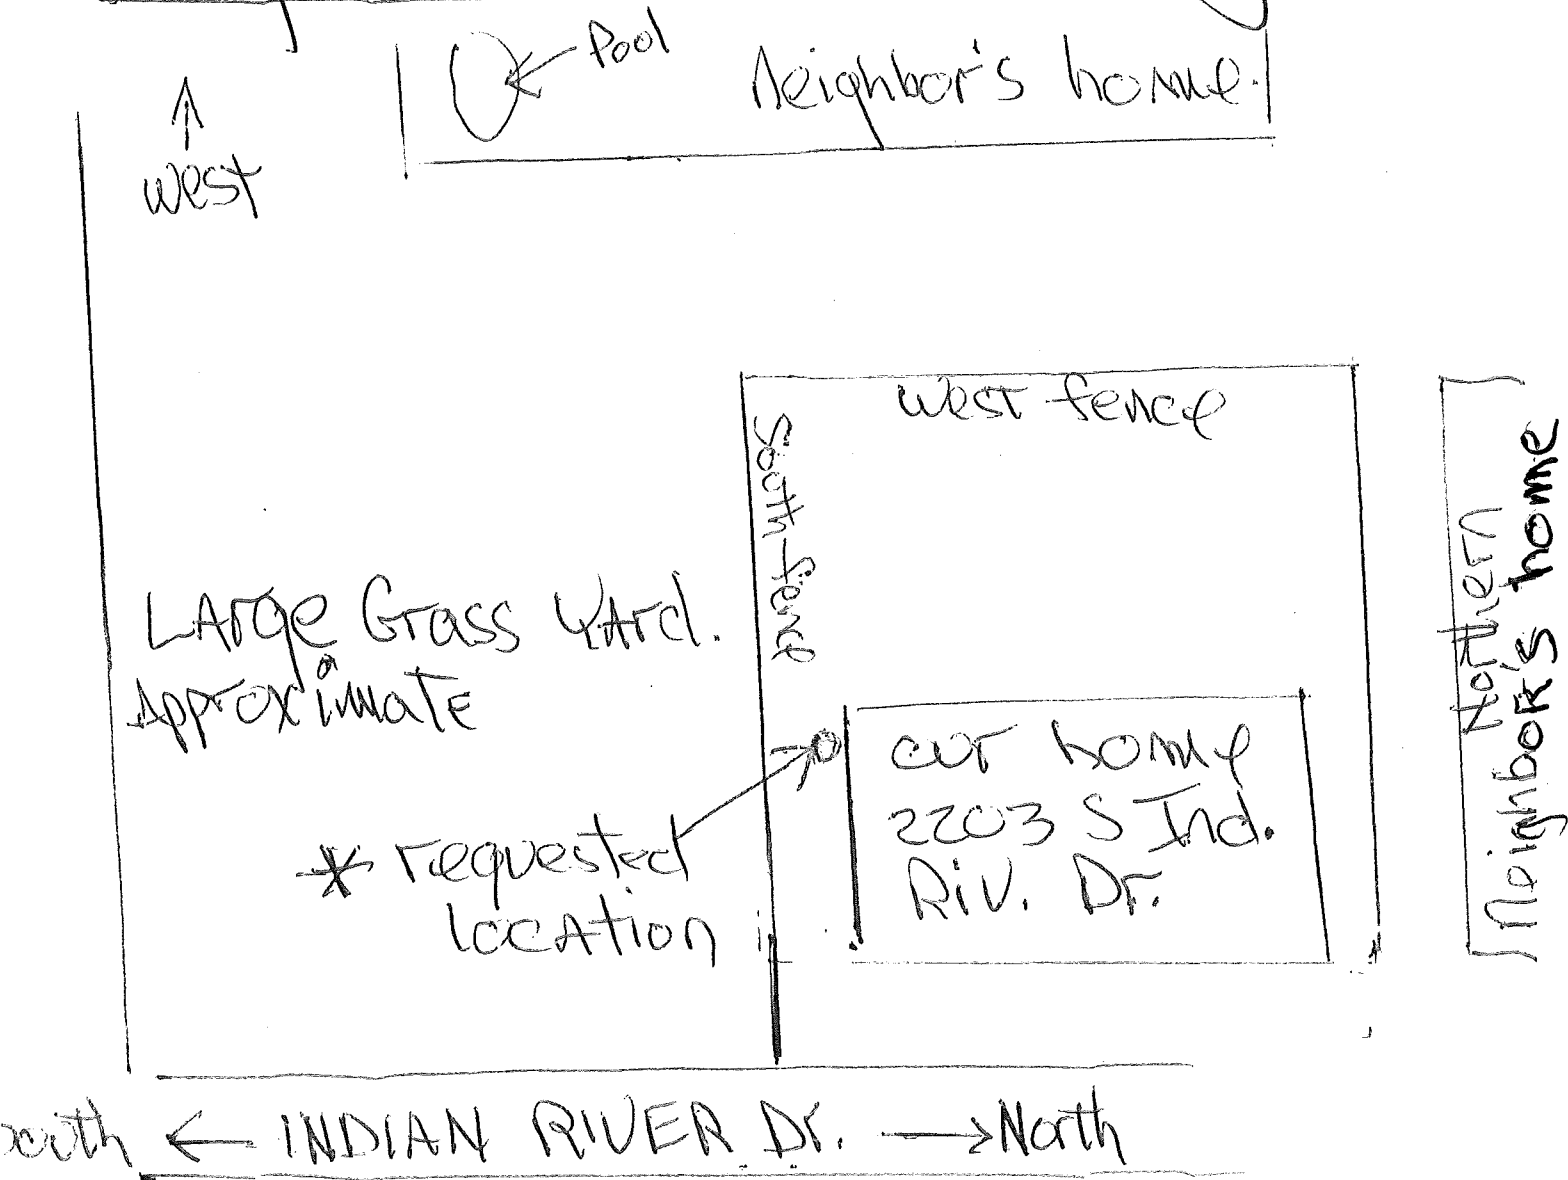 Pool
Neighbor's home.
West
West fence
South fence
Northern
Neighbor's home
LArge Grass YArd.
Approximate
our home
2203 S Ind.
Riv. Dr.
* requested
location
South ← INDIAN RIVER Dr. → North